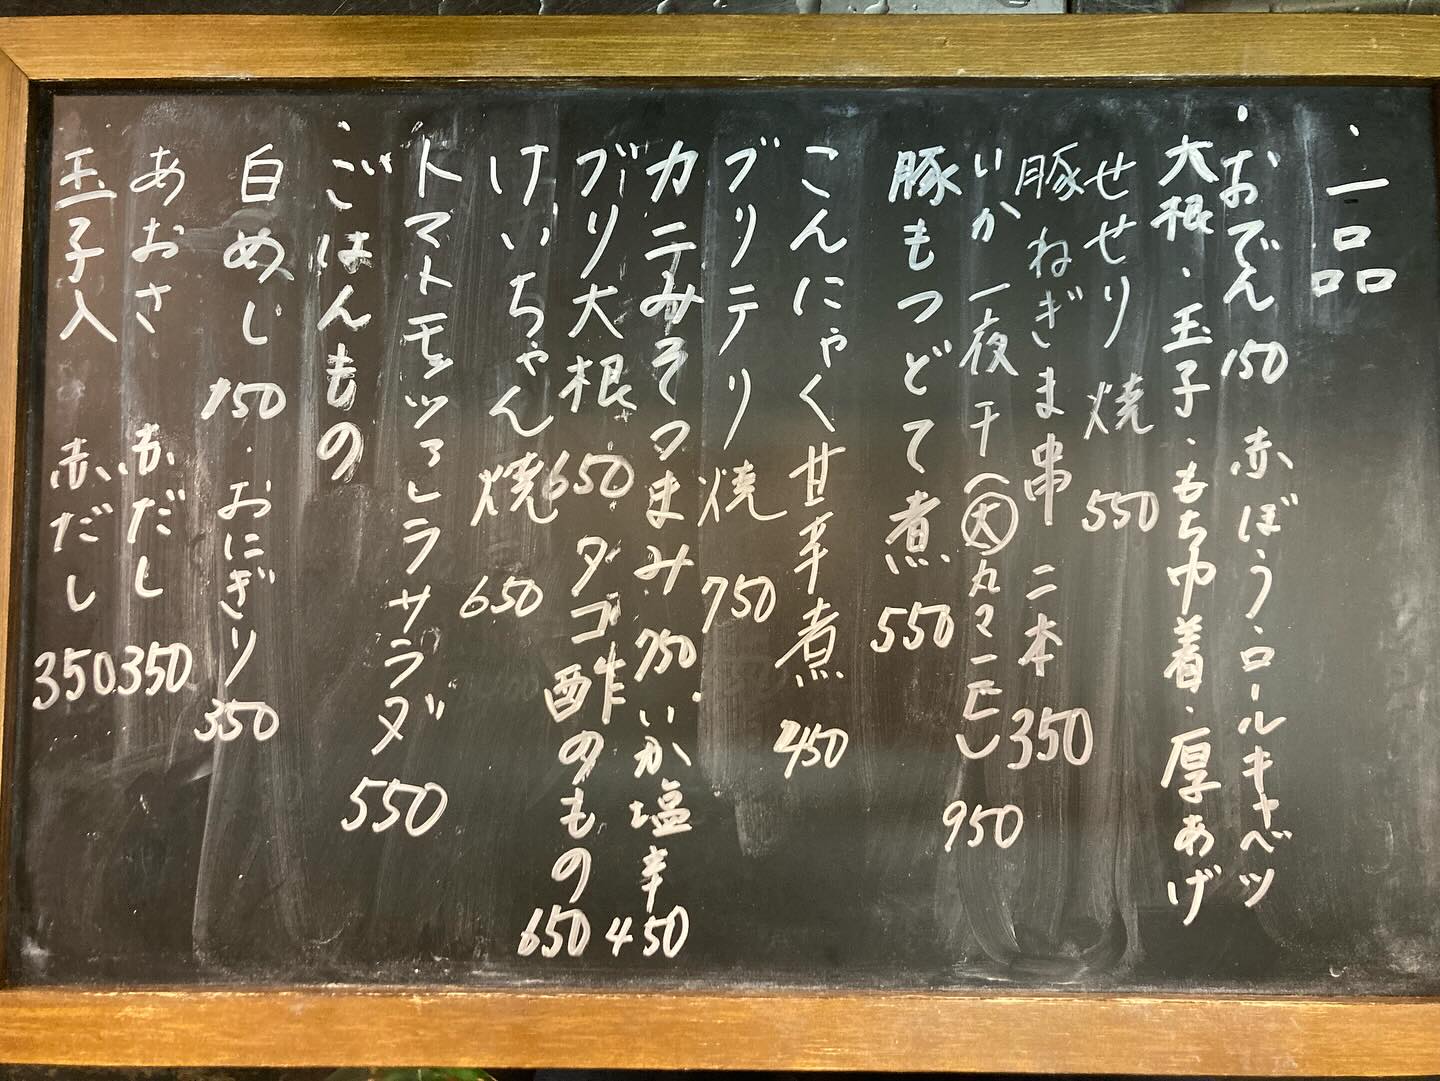 ・一品
・おでん 150 赤ぼう・ロールキャベツ
大根・玉子・もち巾着・厚あげ
せせり焼 550
豚ねぎま串 二本 350
いか一夜干(大)丸々一匹 950
豚もつどて煮 550
こんにゃく甘辛煮 450
ブリテリ焼 750
カニみそつまみ 750 いか塩辛 450
ブリ大根 650 タコ酢のもの 650
けいちゃん焼 650
トマトモッツァレラサラダ 550
・ごはんもの
白めし 150・おにぎり 350
あおさ 赤だし 350
玉子入 赤だし 350